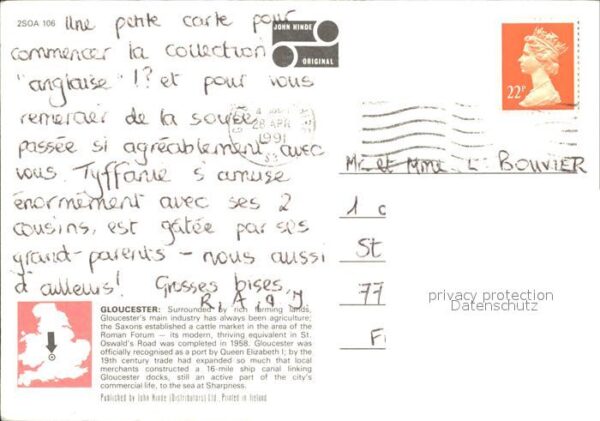 2SOA 106
Une petite carte pour
commencer la collection
"anglaise" !? et pour vous
remercier de la soirée
passée si agréablement avec
vous. Tyffanie s'amuse
énormément avec ses 2
cousins, est gâtée par ses
grand-parents - nous aussi
d'ailleurs! Grosses bises,
JOHN HINDE
ORIGINAL
28 APR
1991
22P
Mr et Mme L. BOUVIER
1
St
77
F
privacy protection
Datenschutz
GLOUCESTER: Surrounded by rich farming lands,
Gloucester's main industry has always been agriculture;
the Saxons established a cattle market in the area of the
Roman Forum — its modern, thriving equivalent in St.
Oswald's Road was completed in 1958. Gloucester was
officially recognised as a port by Queen Elizabeth I; by the
19th century trade had expanded so much that local
merchants constructed a 16-mile ship canal linking
Gloucester docks, still an active part of the city's
commercial life, to the sea at Sharpness.
Published by John Hinde (Distributors) Ltd., Printed in Ireland